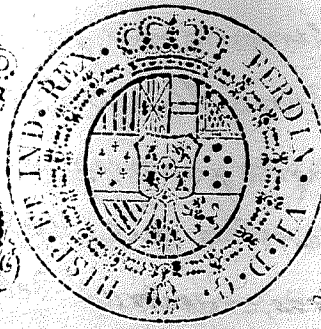 FERDIN. VII. D. G. HISP. ET IND. REX.